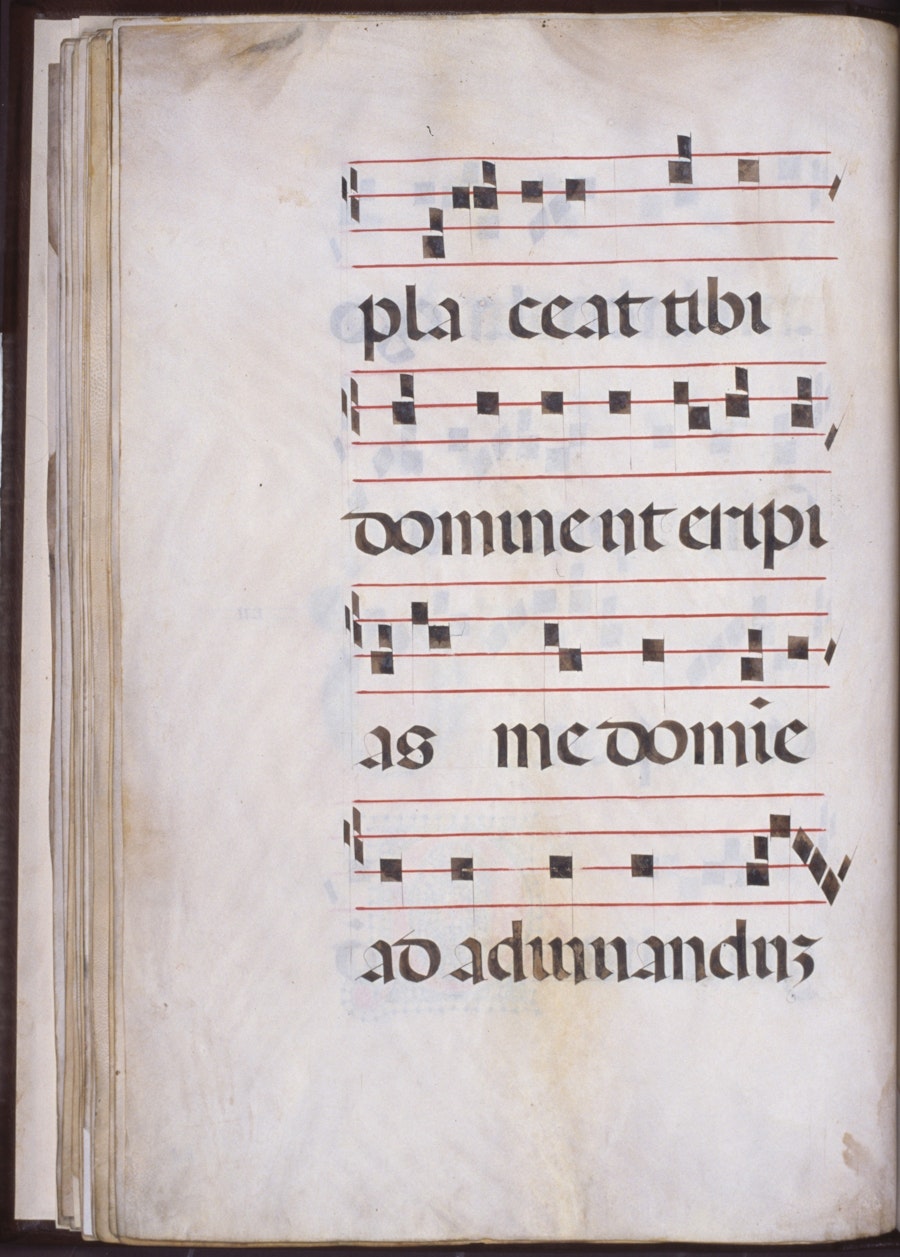 pla ceat tibi
dominent eripi
as me domīe
ad adiuuanduʒ